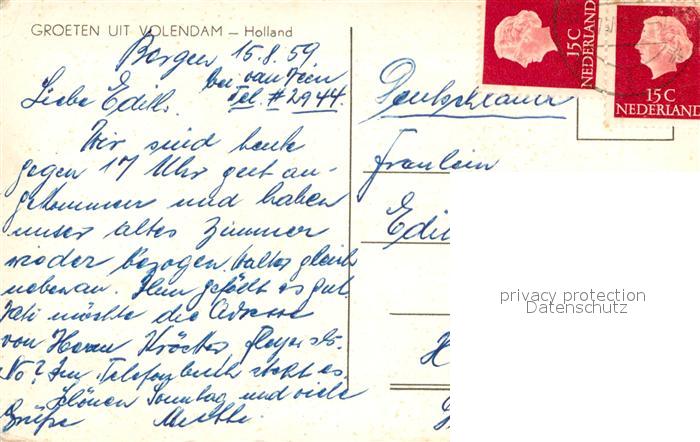 GROETEN UIT VOLENDAM — Holland
15 C
NEDERLAND
15 C
NEDERLAND
Bergen 15.8.59
bei van
Tel. #2944.
Liebe Edith.
Wir sind heute
gegen 17 Uhr gut an-
gekommen und haben
unser altes Zimmer
wieder bezogen. Walter gleich
nebenan. Ihm gefällt es gut.
möchte die Adresse
von Herrn
No? Im Telefonbuch steht es.
Schönen Sonntag und viele
Grüße
Deutschland
Fräulein
Edi
H
privacy protection
Datenschutz